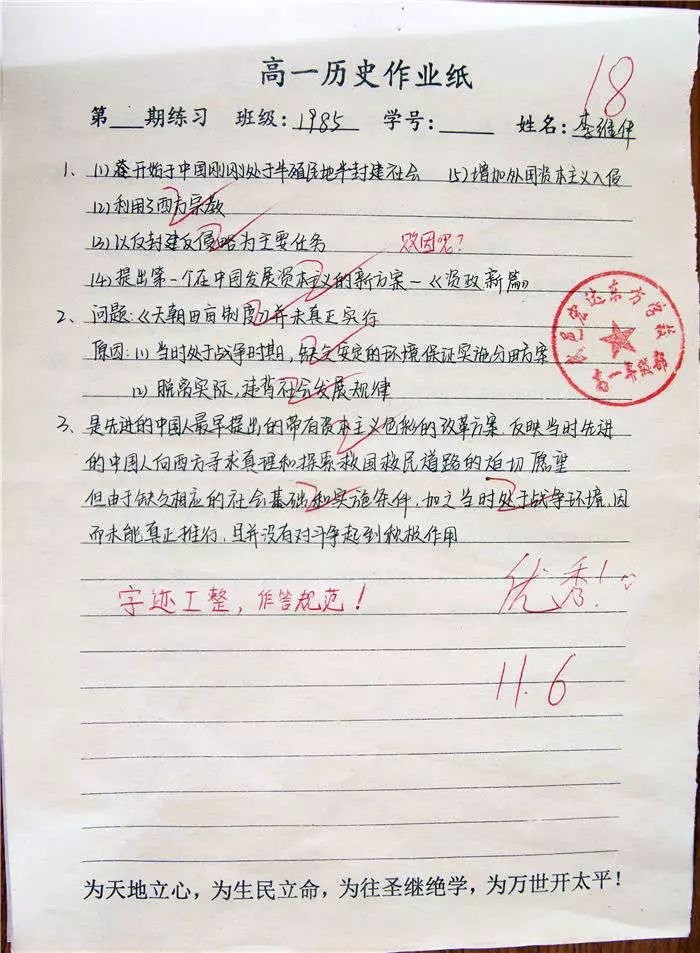 高一历史作业纸
18
第 期练习 班级:1985 学号: 姓名:李维伊
1、(1)开始于中国刚刚处于半殖民地半封建社会 (5)增加外国资本主义入侵
(2)利用了西方宗教
(3)以反封建反侵略为主要任务 败因呢?
(4)提出第一个在中国发展资本主义的新方案—《资政新篇》
2、问题:《天朝田亩制度》并未真正实行
原因:(1)当时处于战争时期,缺乏安定的环境保证实施分田方案
(2)脱离实际,违背社会发展规律
3、是先进的中国人最早提出的带有资本主义色彩的改革方案,反映当时先进
的中国人向西方寻求真理和探索救国救民道路的迫切愿望
但由于缺乏相应的社会基础和实施条件,加之当时处于战争环境,因
而未能真正推行,且并没有对斗争起到积极作用
字迹工整,作答规范!
优秀!
11.6
东方学校
高一年级部
为天地立心,为生民立命,为往圣继绝学,为万世开太平!